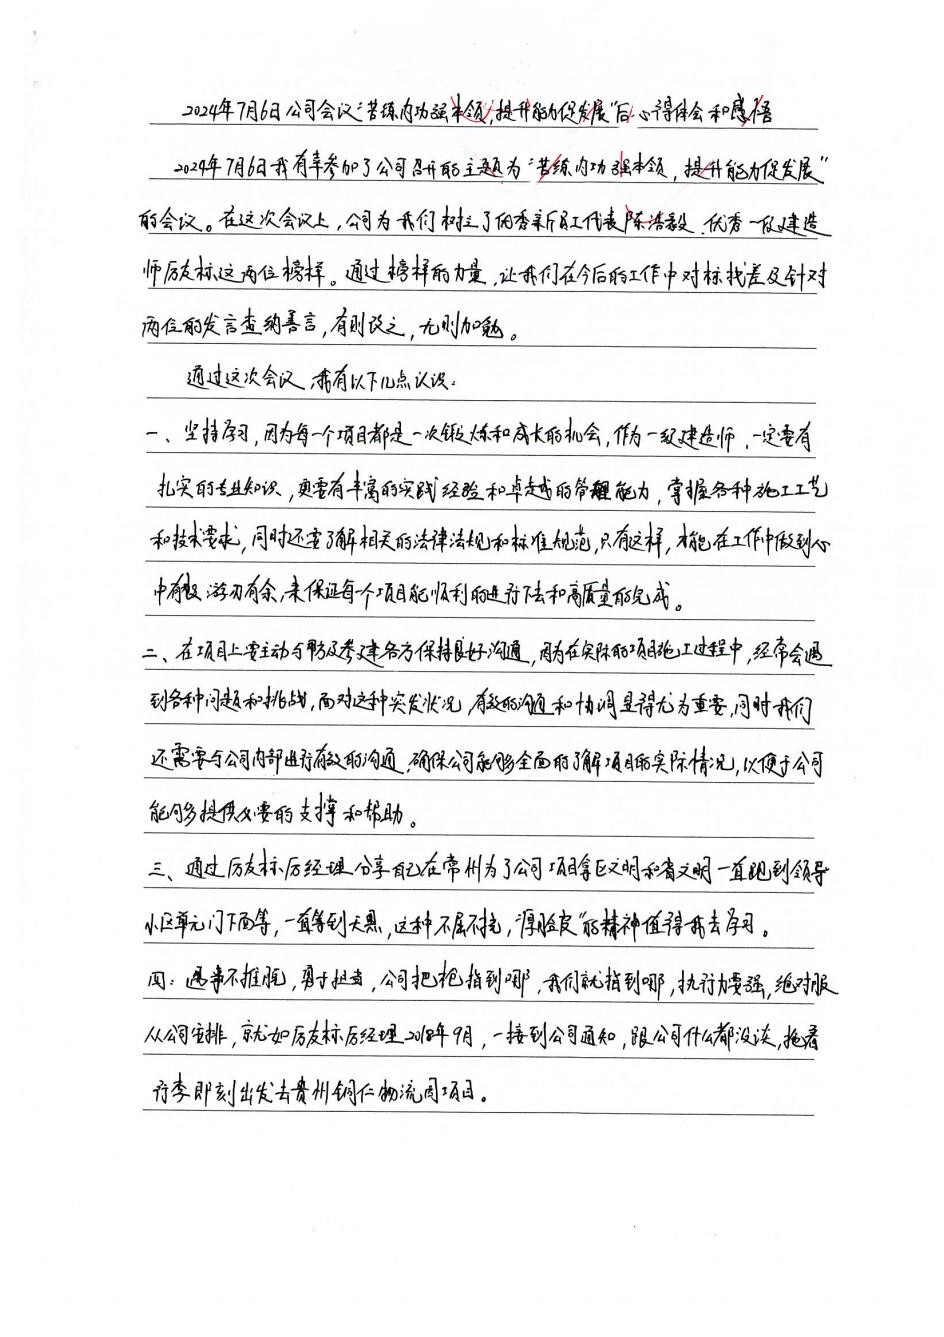 2024年7月6日公司会议“苦练内功强本领,提升能力促发展”后心得体会和感悟
2024年7月6日我有幸参加了公司召开的主题为“苦练内功强本领,提升能力促发展”
的会议。在这次会议上,公司为我们树立了优秀新员工代表陈浩毅、优秀一级建造
师厉友标这两位榜样。通过榜样的力量,让我们在今后的工作中对标找差及针对
两位的发言查纳善言,有则改之,无则加勉。
通过这次会议,我有以下几点认识:
一、坚持学习,因为每一个项目都是一次锻炼和成长的机会,作为一级建造师,一定要有
扎实的专业知识,更要有丰富的实践经验和卓越的管理能力,掌握各种施工工艺
和技术要求,同时还要了解相关的法律法规和标准规范,只有这样,才能在工作中做到心
中有数,游刃有余,来保证每个项目能顺利的进行下去和高质量的完成。
二、在项目上要主动与甲方及参建各方保持良好沟通,因为在实际的项目施工过程中,经常会遇
到各种问题和挑战,面对这种突发状况,有效的沟通和协调显得尤为重要,同时我们
还需要与公司内部进行有效的沟通,确保公司能够全面的了解项目的实际情况,以便于公司
能够多提供必要的支撑和帮助。
三、通过厉友标厉经理分享自己在常州为了公司项目拿区文明和省文明一直跑到领导
小区单元门下面等,一直等到天黑,这种不屈不挠,“厚脸皮”的精神值得我去学习。
四:遇事不推脱,勇于担当,公司把枪指到哪,我们就指到哪,执行力要强,绝对服
从公司安排,就如厉友标厉经理2018年9月,一接到公司通知,跟公司什么都没谈,拖着
行李即刻出发去贵州铜仁物流园项目。